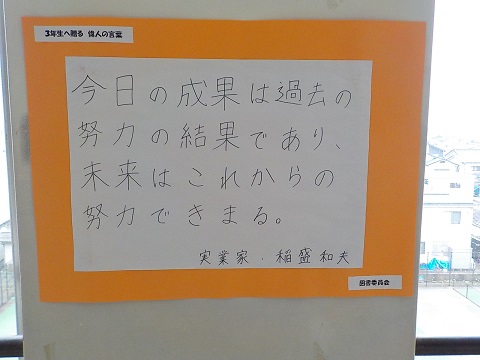 3年生へ贈る 偉人の言葉
今日の成果は過去の
努力の結果であり、
未来はこれからの
努力できまる。
実業家・稲盛和夫
図書委員会